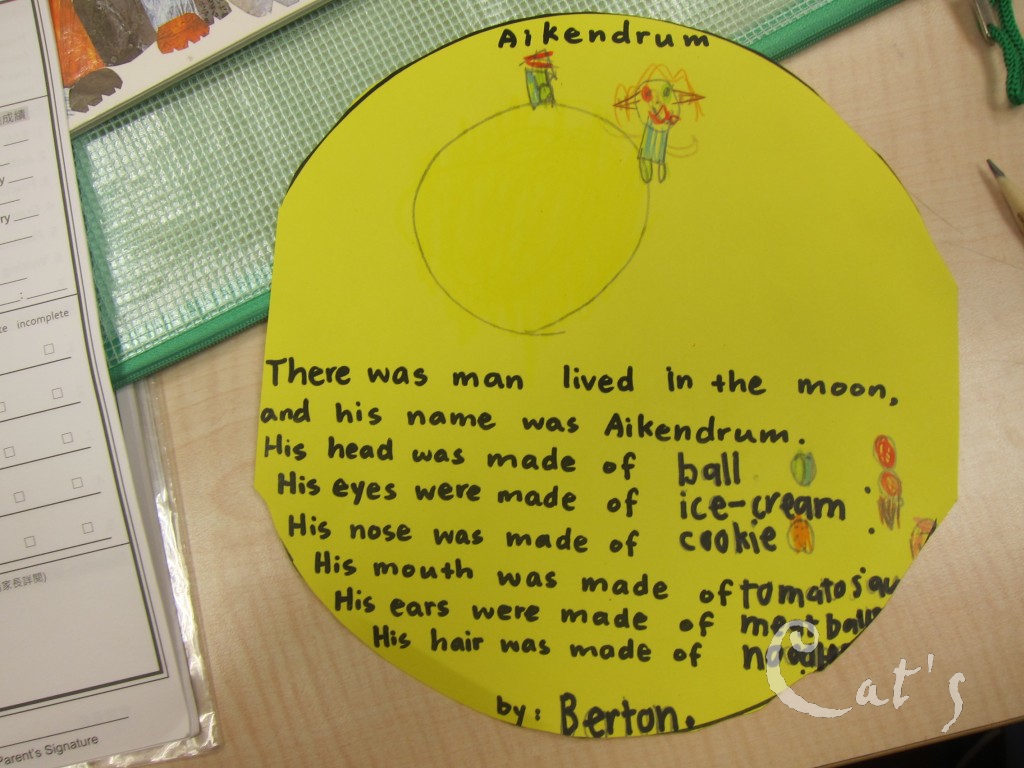 Aikendrum
There was man lived in the moon,
and his name was Aikendrum.
His head was made of ball
His eyes were made of ice-cream.
His nose was made of cookie.
His mouth was made of tomato
His ears were made of meat ball
His hair was made of
by: Berton.
Cat's
incomplete
Parent's Signature